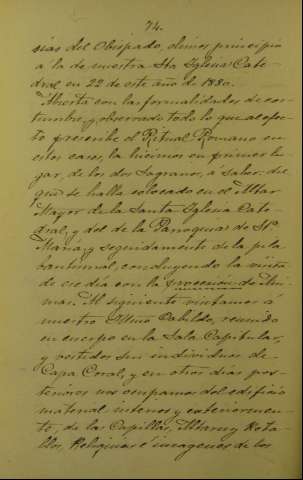 74.
sias del Obispado, dimos principio
á la de nuestra Sta Iglesia Cate-
dral en 22 de este año de 1880.
Abierta con las formalidades de cos-
tumbre, y observado todo lo que al efec-
to prescribe el Ritual Romano en
estos casos, la hicimos en primer lu-
gar, de los dos Sagrarios, á saber: del
que se halla colocado en el Altar
Mayor de la Santa Iglesia Cate-
dral, y del de la Parroquia de Sta
María, y seguidamente de la pila
bautismal, concluyendo la visita
de ese día con la procesion de Áni-
mas. Al siguiente visitamos á
nuestro Iltmo Cabildo, reunido
en cuerpo en la Sala Capitular,
y vestidos sus individuos de
Capa Coral, y en otros dias pos-
teriores nos ocupamos del edificio
material interior y exteriormen-
te, de las Capillas, Altares y Reta-
blos, Reliquias é imagenes de los